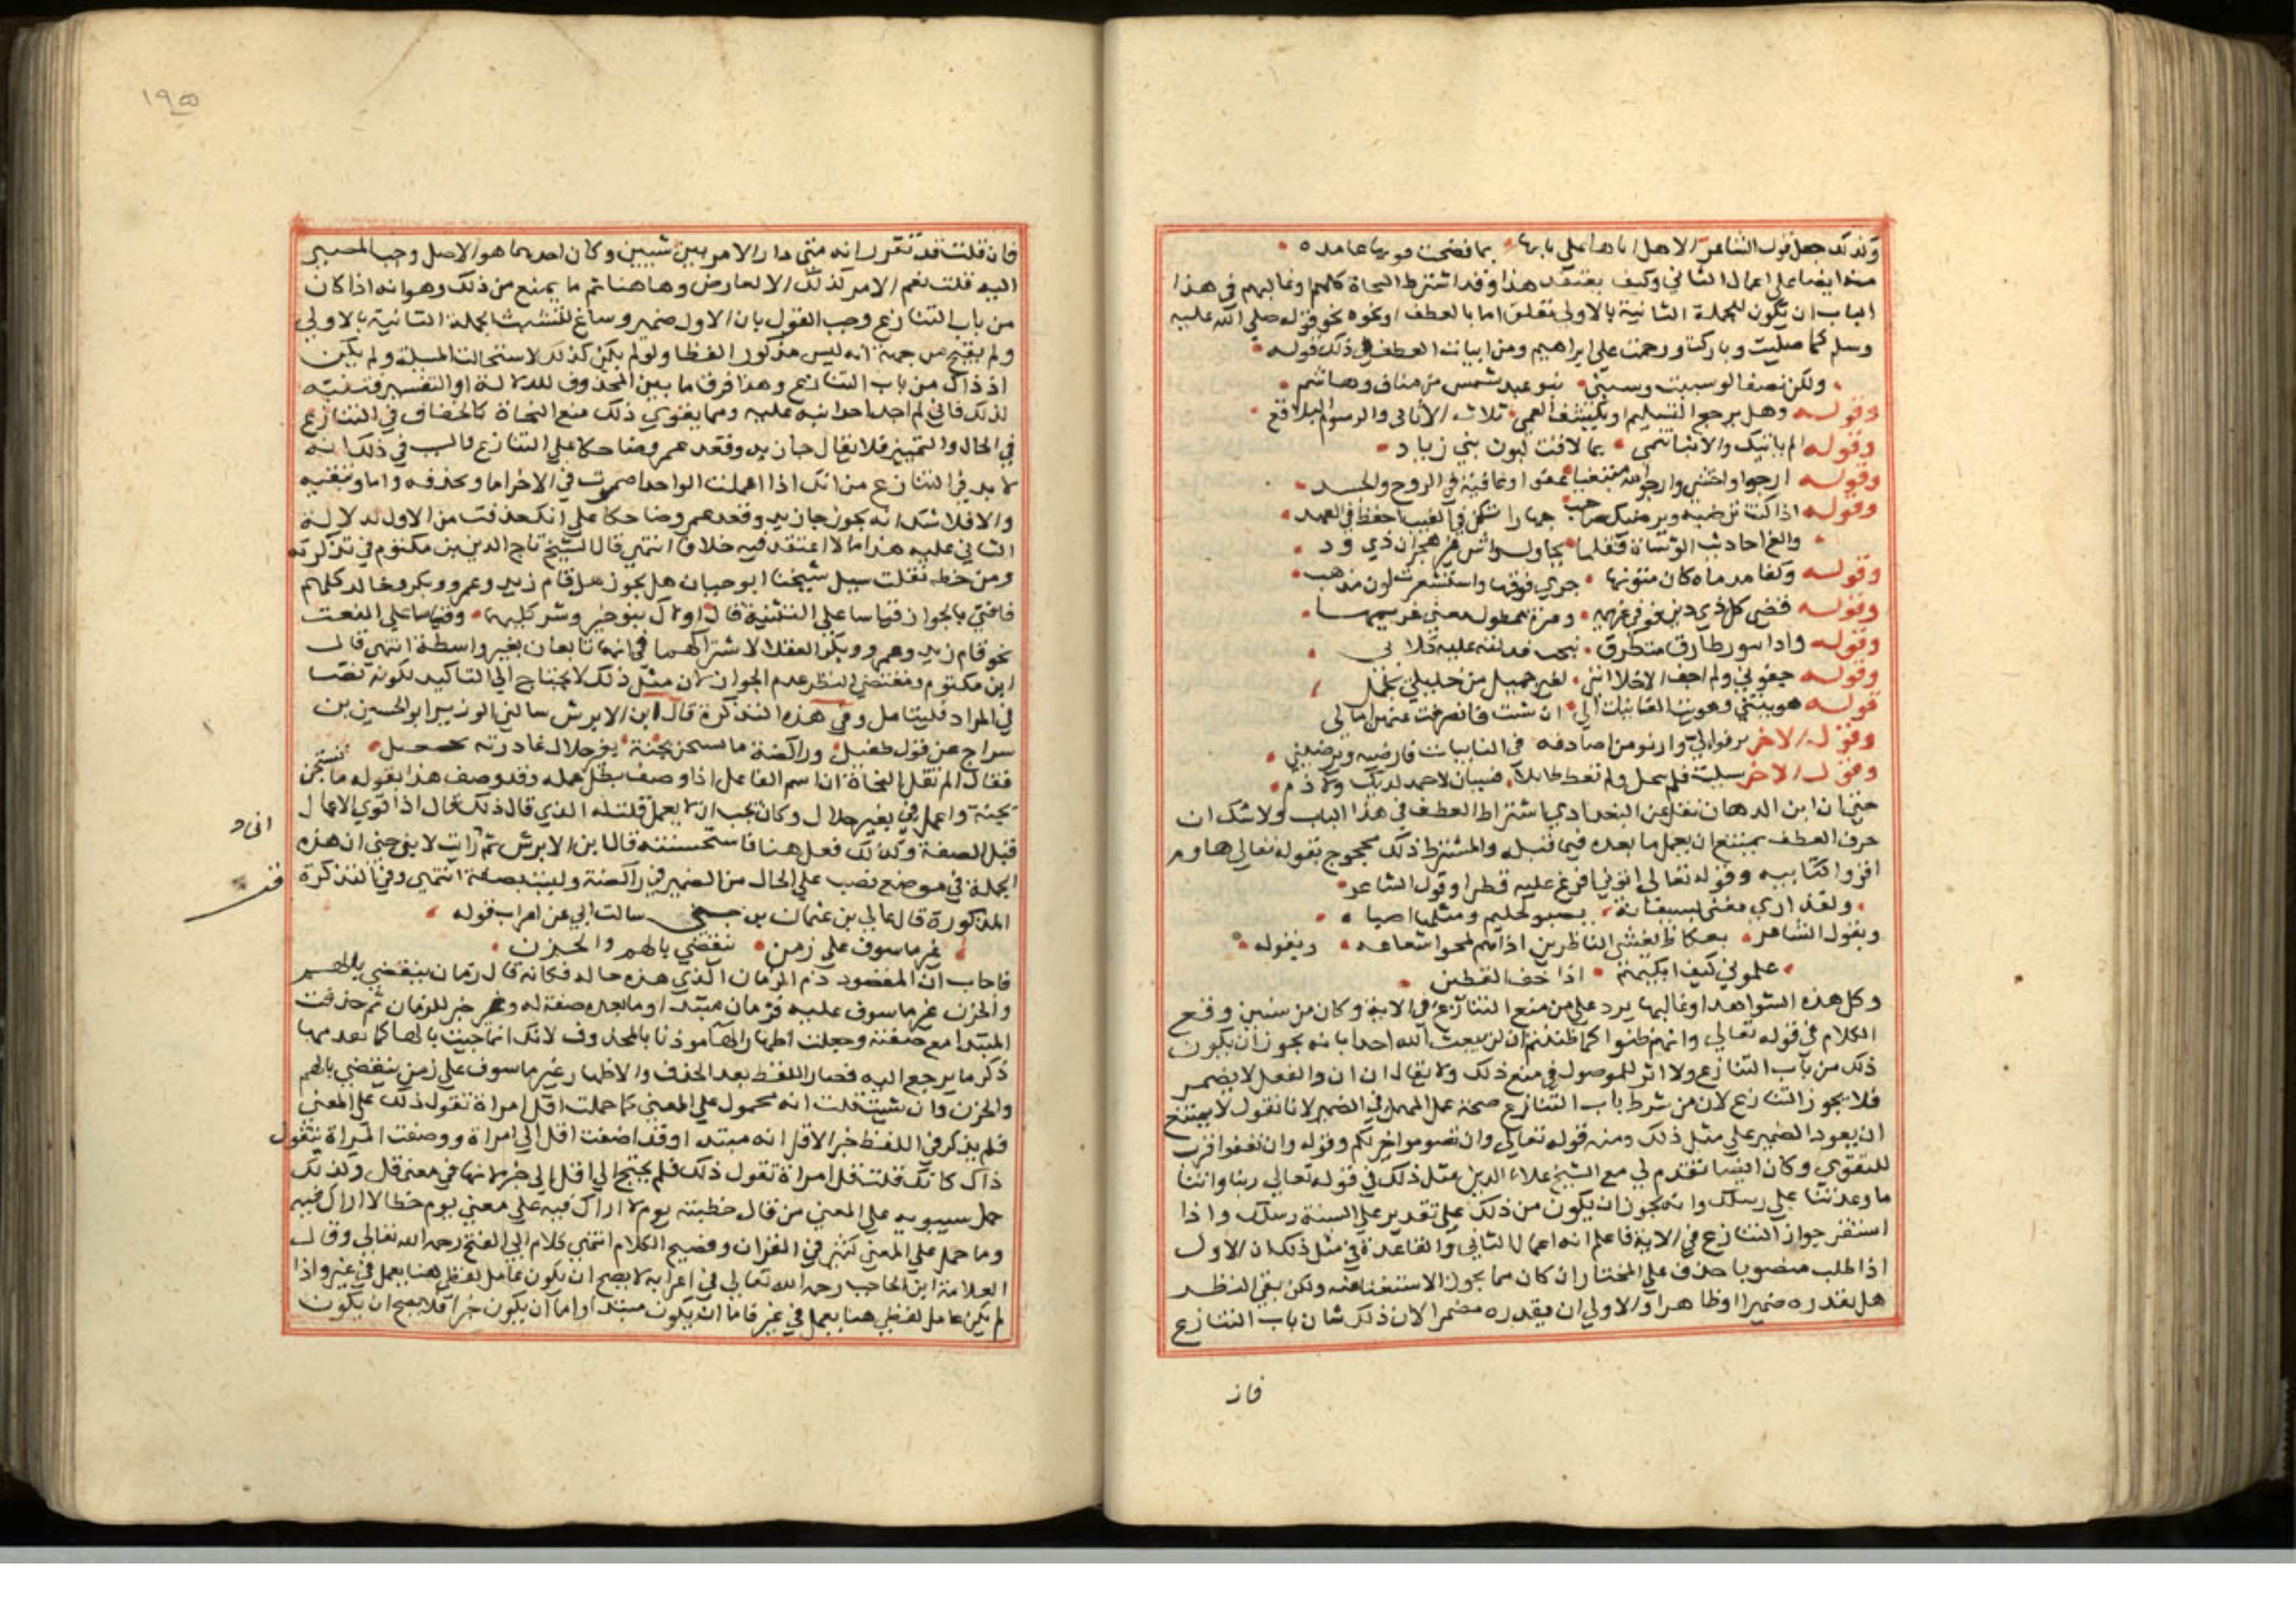 وكذلك جعل قول الشاعر الا هل اتاها على نابها بما فضحت قومها غامده
منه ايضا على اعمال الثاني وكيف يعتقد هذا وقد اشترط النحاة كلهم وغالبهم في هذا
الباب ان يكون للجملة الثانية بالاولى تعلق اما بالعطف او نحوه نحو قوله صلى الله عليه
وسلم كما صليت وباركت ورحمت على ابراهيم ومن ابيات العطف في ذلك قوله
ولكن نصفا لو سببت وسبني بنو عبد شمس من مناف وهاشم
وقوله وهل يرجع التسليم او يكشف العمى ثلاث الاثافي والرسوم البلاقع
وقوله الم ياتيك والانبا تنمي بما لاقت لبون بني زياد
وقوله ارجوا واخشى وارجوا الله مبتغيا عفوا وعافية في الروح والجسد
وقوله اذا كنت ترضيه ويرضيك صاحب جهارا فكن في الغيب احفظ في العهد
والغ احاديث الوشاة فقلما يحاول واش غير هجران ذي ود
وقوله وكمتا مدماه كان متونها جرى فوقها واستشعرت لون مذهب
وقوله قضى كل ذي دين فوفى غريمه وعزة ممطول معنى غريمها
وقوله واذا سور طارق متطرق نبحت فدلته عليه كلابي
وقوله جفوني ولم اجف الاخلا انني لغير جميل من خليلي مجمل
قوله هويتني وهويت الغانيات الي ان شبت فانصرفت عنهن امالي
وقول الاخر يرنو الي وارنو من اصادفه في النايبات فارضيه ويرضيني
وقول الاخر سيلت فلم تبخل ولم تعط طايلا فسيان لا حمد لديك ولا ذم
حتى ان ابن الدهان نقل عن البغدادي اشتراط العطف في هذا الباب ولا شك ان
حرف العطف يمتنع ان يعمل ما بعده فيما قبله والمشترط ذلك محجوج بقوله تعالى هاوم
اقروا كتابيه وقوله تعالى اتوني افرغ عليه قطرا وقول الشاعر
ولقد ارى تغنى به سيفانة تصبو الحليم ومثلها اصباه
وبقول الشاعر بعكاظ يعشى الناظرين اذا هم لمحوا شعاعه وبقوله
علموني كيف ابكيهم اذا خف القطين
وكل هذه الشواهد او غالبها يرد على من منع التنازع في الاية وكان من سنين وقع
الكلام في قوله تعالى وانهم ظنوا كما ظننتم ان لن يبعث الله احدا بانه يجوز ان يكون
ذلك من باب التنازع ولا اثر للموصول في منع ذلك ولا يقال ان ان والفعل لا يضمر
فلا يجوز التنازع لان من شرط باب التنازع صحة عمل المهمل في الضمير لانا نقول لا يمتنع
ان يعود الضمير على مثل ذلك ومنه قوله تعالى وان تصوموا خير لكم وقوله وان تعفوا اقرب
للتقوى وكان ايضا تقدم لي مع الشيخ علاء الدين مثل ذلك في قوله تعالى ربنا واتنا
ما وعدتنا على رسلك وانه يجوز ان يكون من ذلك على تقدير على السنة رسلك واذا
استقر جواز التنازع في الاية فاعلم انه اعمال الثاني والقاعدة في مثل ذلك ان الاول
اذا طلب منصوبا حذف على المختار ان كان مما يجوز الاستغنا عنه ولكن بقي النظر
هل يقدره ضميرا او ظاهرا والاولى ان يقدره مضمرا لان ذلك شان باب التنازع
فان
١٩٥
فان قلت قد تقرر انه متى دار الامر بين شيين وكان احدهما هو الاصل وجب المصير
اليه قلت نعم الامر كذلك الا لعارض وهاهنا ثم ما يمنع من ذلك وهو انه اذا كان
من باب التنازع وجب القول بان الاول ضمير وساغ لتشبث الجملة الثانية بالاولى
ولم يقبح من جهة انه ليس مذكورا لفظا ولو لم يكن كذلك لاستحالت المسيلة ولم يكن
اذ ذاك من باب التنازع وهذا فرق ما بين المحذوف للدلالة او التفسير فتنبه
لذلك فاني لم اجد احدا نبه عليه ومما يقوي ذلك منع النحاة كالخفاف في التنازع
في الحال والتمييز فلا يقال جا زيد وقعد عمرو ضاحكا على التنازع قال في ذلك انه
لا بد في التنازع من انك اذا اعملت الواحد اضمرت في الاخر اما وتحذفه واما وتبقيه
والا فلا شك انه يجوز جا زيد وقعد عمرو ضاحكا على انك حذفت من الاول لدلالة
الثاني عليه هذا ما لا اعتقد فيه خلافا انتهى قال الشيخ تاج الدين بن مكتوم في تذكرته
ومن خطه نقلت سيل شيخنا ابو حيان هل يجوز هل قام زيد وعمرو وبكر وخالد كلهم
فافتى بالجواز قياسا على التثنية قال اولاك بنو خير وشر كليهما وقياسا على النعت
نحو قام زيد وعمرو وبكر العقلا لاشتراكهما في انهما تابعان بغير واسطة انتهى قال
ابن مكتوم ومقتضى النظر عدم الجواز لان مثل ذلك لا يحتاج الى التاكيد لكونه نصا
في المراد فليتامل وفي هذه التذكرة قال ابن الابرش سالني الوزير ابو الحسين بن
سراج عن قول طفيل وراكضة ما تستجن بجنة بعير حلال غادرته مجعفل
فقال الم تقل النحاة ان اسم الفاعل اذا وصف بطل عمله وقد وصف هذا بقوله ما تستجن
بجنة واعمل في بعير حلال وكان يجب ان لا يعمل قلت له الذي قال ذلك قال اذا نوي الاعمال
قبل الصفة وكذلك فعل هنا فاستحسنته قال ابن الابرش ثم رايت لابن جني ان هذه
الجملة في موضع نصب على الحال من الضمير في راكضة وليست بصفة انتهى وفي التذكرة
المذكورة قال عالي بن عثمان بن جني سالت ابي عن اعراب قوله
غير ماسوف على زمن ينقضي بالهم والحزن
فاجاب ان المقصود ذم الزمان الذي هذه حاله فكانه قال زمان ينقضي بالهم
والحزن غير ماسوف عليه فزمان مبتدا وما بعده صفة له وغير خبر للزمان ثم حذفت
المبتدا مع صفته وجعلت اظهار الها موذنا بالمحذوف لانك انما جيت بالها كما تقدمها
ذكر ما يرجع اليه فصار اللفظ بعد الحذف والاظهار غير ماسوف على زمن ينقضي بالهم
والحزن وان شيت قلت انه محمول على المعنى كما حملت اقل امراة تقول ذلك على المعنى
فلم يذكر في اللفظ خبر الاقل انه مبتدا وقد اضفت اقل الى امراة ووصفت المراة بتقول
ذاك كانك قلت قل امراة تقول ذلك فلم يحتج الى اقل الى خبر لانها في معنى قل وكذلك
حمل سيبويه على المعنى من قال خطيئة يوم لا اراك فيه على معنى يوم خطا لا اراك فيه
وما حمل على المعنى كثير في القران وفصيح الكلام انتهى كلام ابي الفتح رحمه الله تعالى وقال
العلامة ابن الحاجب رحمه الله تعالى في اعرابه لا يصح ان يكون عامل لفظي هنا يعمل في غير واذا
لم يكن عامل لفظي هنا يعمل في غير فاما ان يكون مبتدا واما ان يكون خبرا فلا يصح ان يكون